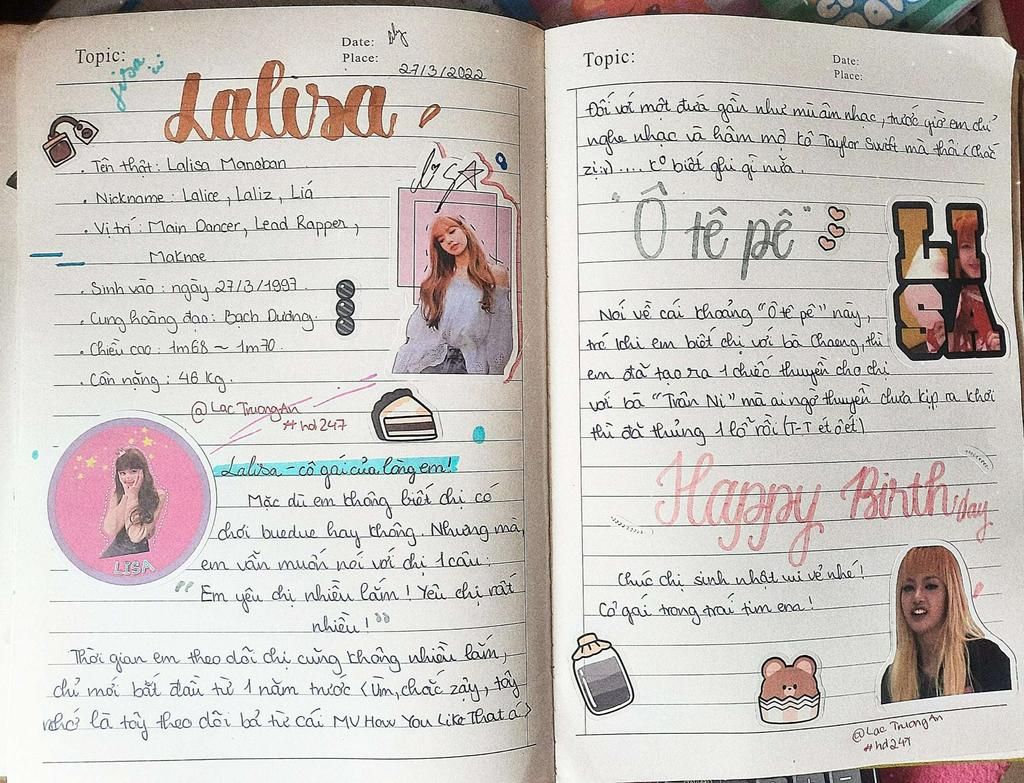 Topic:
jisa
Date:
Place:
27/3/2022
Lalisa
. Tên thật: Lalisa Manoban
. Nickname: Lalice, Laliz, Liá
. Vị trí: Main Dancer, Lead Rapper,
Maknae
. Sinh vào: ngày 27/3/1997.
. Cung hoàng đạo: Bạch Dương.
. Chiều cao: 1m68 ~ 1m70.
. Cân nặng: 46 kg.
@Lac TruongAn
#hd247
LISA
Lalisa - cô gái của lòng em!
Mặc dù em không biết chị có
chơi buedue hay không. Nhưng mà,
em vẫn muốn nói với chị 1 câu:
"Em yêu chị nhiều lắm! Yêu chị rất
nhiều!"
Thời gian em theo dõi chị cũng không nhiều lắm,
chỉ mới bắt đầu từ 1 năm trước (Ừm, chắc zậy, tôy
nhớ là tôy theo dõi bả từ cái MV How You Like That á)
LISA
Topic:
Date:
Place:
Đối với một đứa gần như mù âm nhạc, trước giờ em chỉ
nghe nhạc và hâm mộ cô Taylor Swift mà thôi (Chắc
.... ko biết ghi gì nữa.
"Ô tê pê"
LISA
Nói về cái khoảng "Ô tê pê" này,
trc khi em biết chị với bà Chaeng, thì
em đã tạo ra 1 chiếc thuyền cho chị
với bà "Trân Ni" mà ai ngờ thuyền chưa kịp ra khơi
thì đã thủng 1 lỗ rồi (T-T ét ô ét)
Happy Birthday
Chúc chị sinh nhật vui vẻ nhé!
Cô gái trong trái tim em!
@Lac TruongAn
#hd247